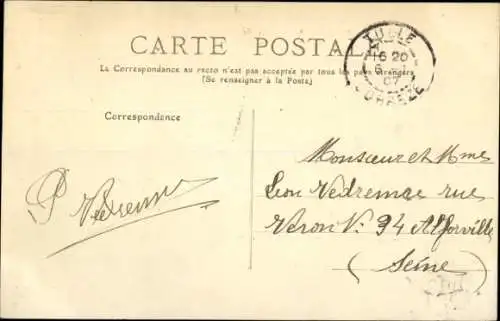 CARTE POSTALE
La Correspondance au recto n'est pas acceptée par tous les pays étrangers
(Se renseigner à la Poste)
TULLE
16 20
07
CORREZE
Correspondance
P Vedrenne
Monsieur et Mme
Leon Vedrenne rue
Veron N° 94 Alforville
(Seine)